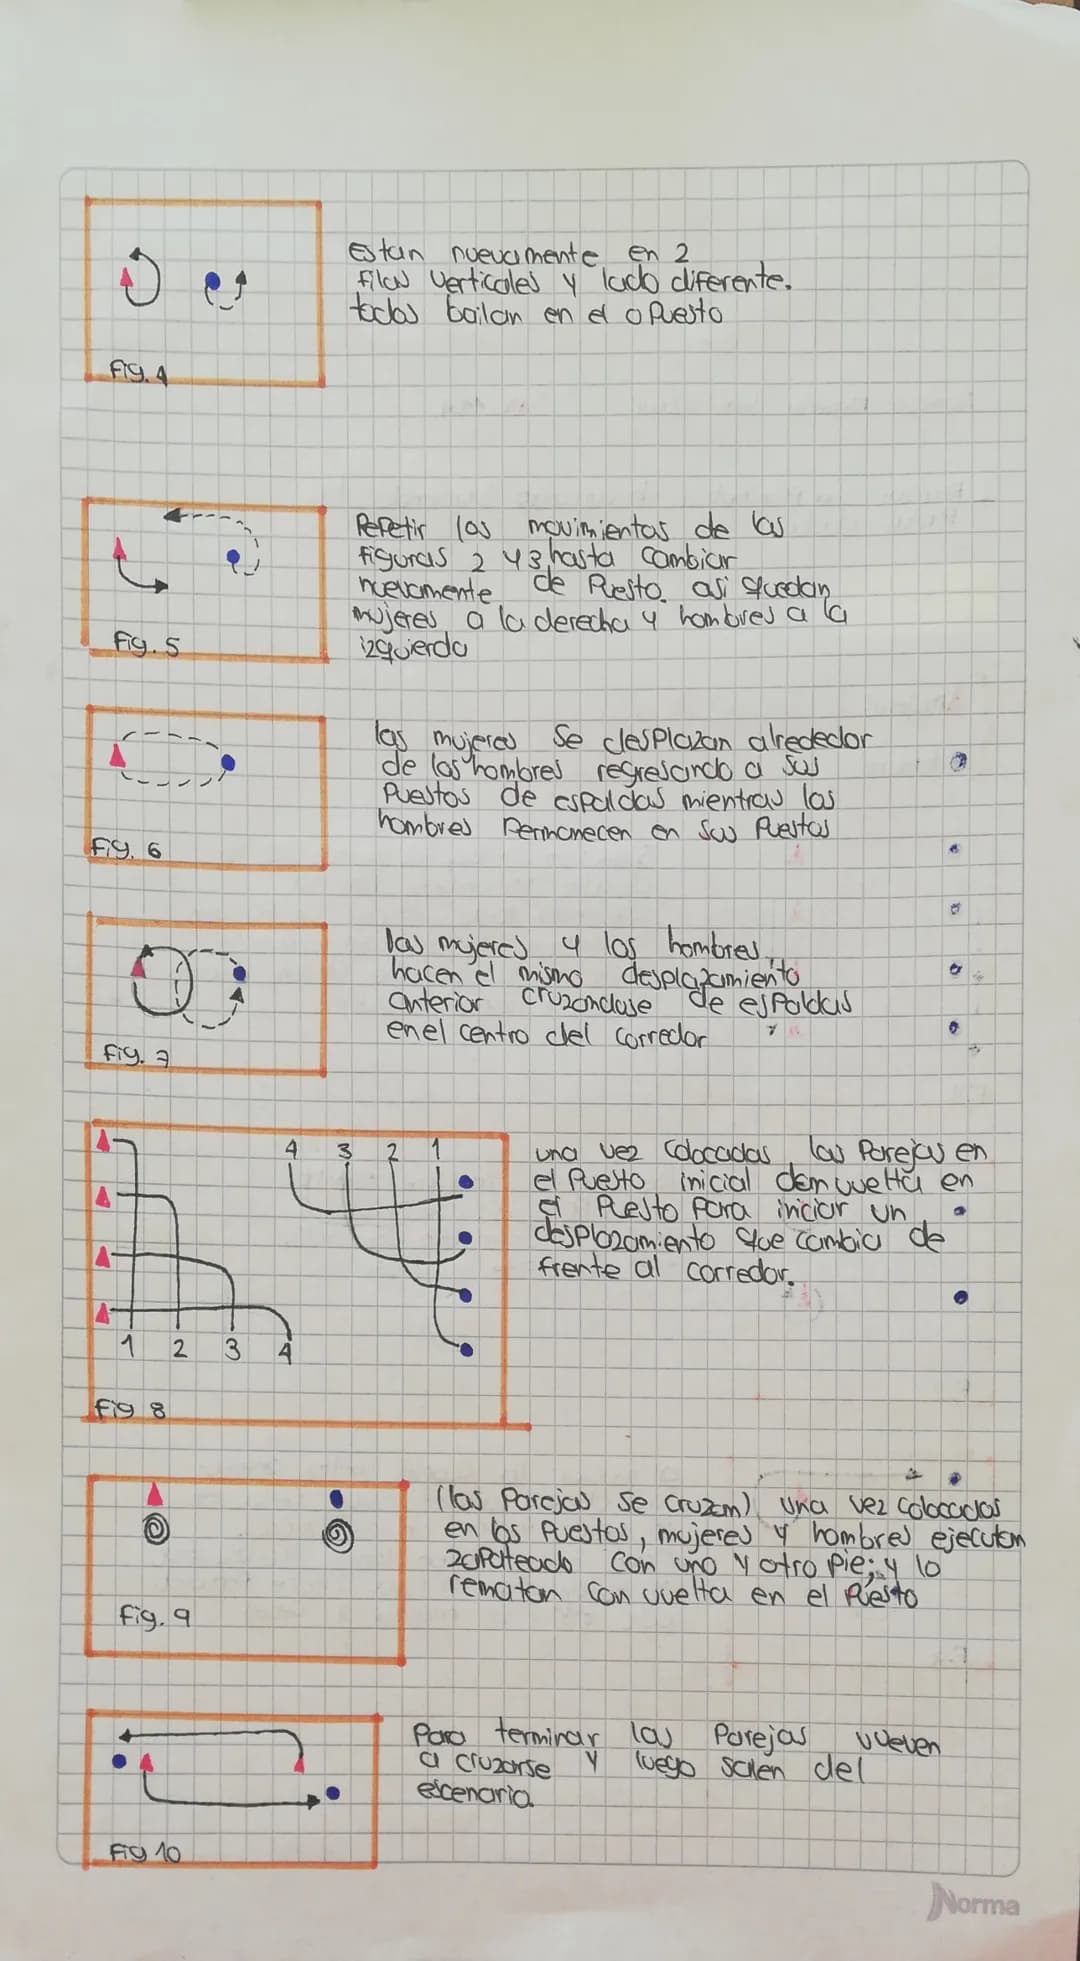 Estan nuevamente en 2
filas verticales y lado diferente.
todos bailan en el opuesto
Fig. 4
Repetir los movimientos de las
figuras 2 y 3 hasta cambiar
nuevamente de Puesto. asi quedan
mujeres a la derecha y hombres a la
izquierda
Fig. 5
las mujeres se desplazan alrededor
de los hombres regresando a sus
Puestos de espaldas mientras los
hombres Permanecen en sus Puestos
Fig. 6
las mujeres y los hombres
hacen el mismo desplazamiento
anterior cruzandose de espaldas
en el centro del corredor
Fig. 7
4 3 2 1
una vez colocadas las Parejas en
el Puesto inicial dan vuelta en
el Puesto para iniciar un
desplazamiento que cambia de
frente al corredor.
1 2 3 4
Fig 8
(las Parejas se cruzan) una vez colocados
en los Puestos, mujeres y hombres ejecutan
zapateado con uno y otro pie; y lo
rematan con vuelta en el Puesto
Fig. 9
Para terminar las Parejas vueven
a cruzarse y luego salen del
escenario.
Fig 10
Norma